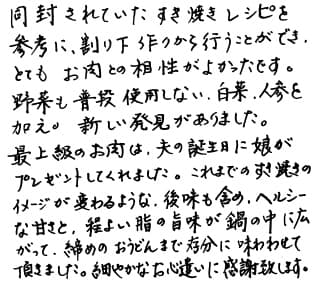 同封されていたすき焼きレシピを
参考に、割り下作りから行うことができ、
とても お肉との相性がよかったです。
野菜も普段使用しない、白菜、人参を
加え。新しい発見がありました。
最上級のお肉は、夫の誕生日に娘が
プレゼントしてくれました。これまでのすき焼きの
イメージが変わるような、後味も含め、ヘルシー
な甘さと、程よい脂の旨味が鍋の中に広
がって、締めのおうどんまで存分に味わわせて
頂きました。細やかなお心遣いに感謝致します。